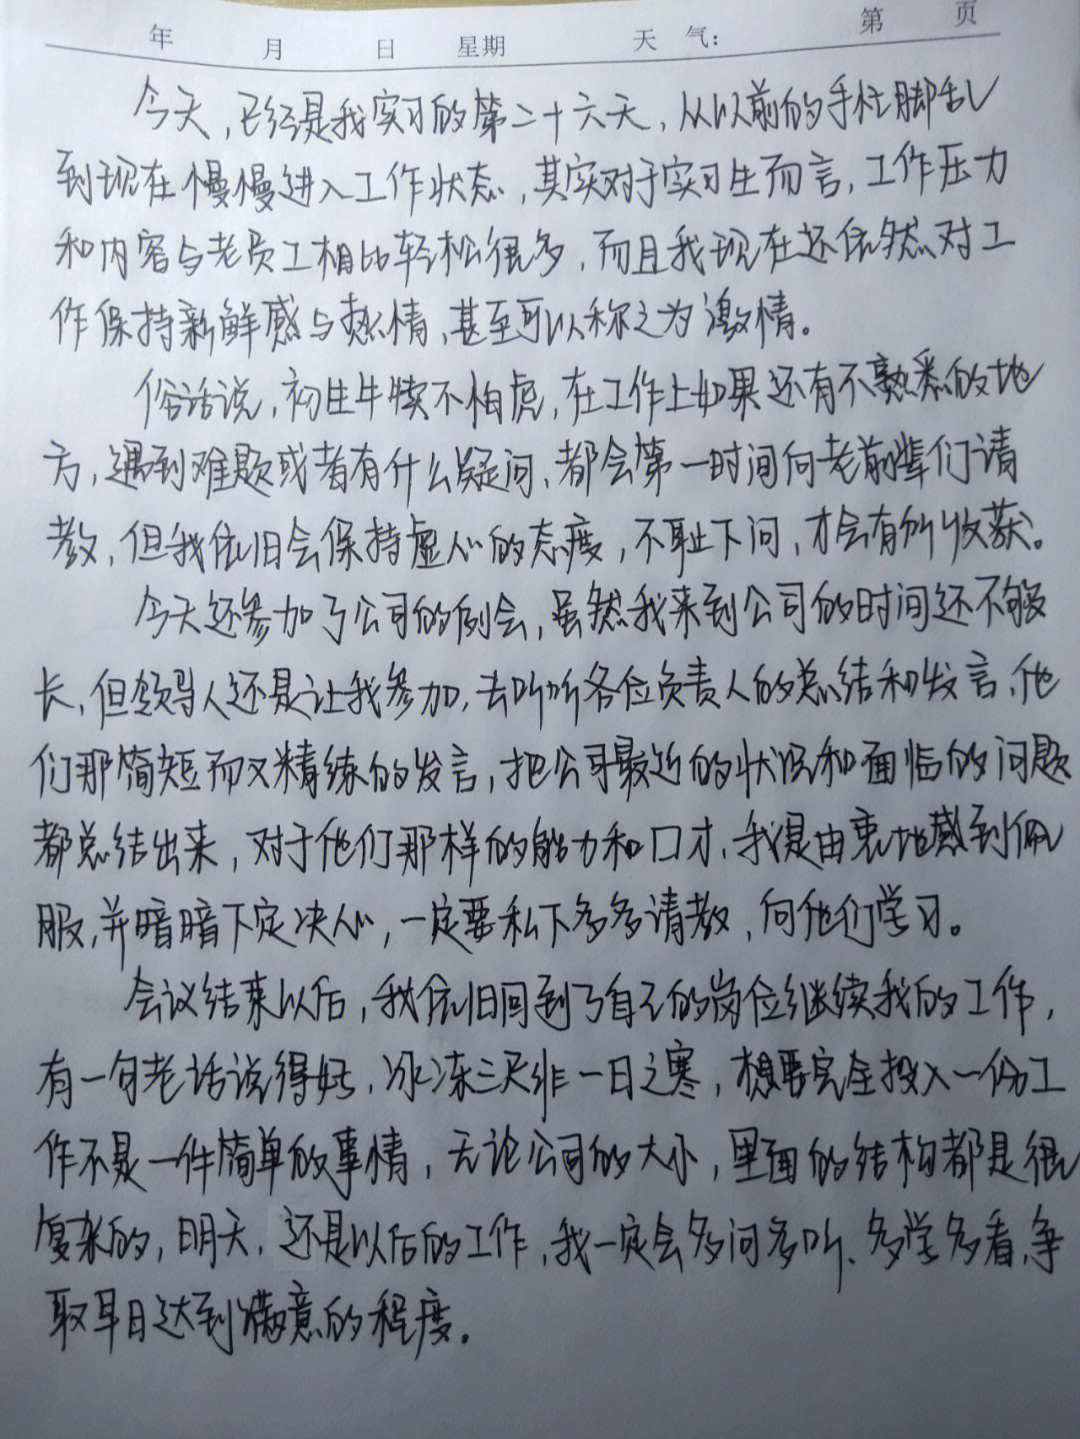 年 月 日 星期 天 气: 第 页
今天,已经是我实习的第二十六天,从以前的手忙脚乱
到现在慢慢进入工作状态,其实对于实习生而言,工作压力
和内容与老员工相比轻松很多,而且我现在还依然对工
作保持新鲜感与热情,甚至可以称之为激情。
俗话说,初生牛犊不怕虎,在工作上如果还有不熟悉的地
方,遇到难题或者有什么疑问,都会第一时间向老前辈们请
教,但我依旧会保持虚心的态度,不耻下问,才会有所收获。
今天还参加了公司的例会,虽然我来到公司的时间还不够
长,但领导人还是让我参加,去听听各位负责人的总结和发言,他
们那简短而又精练的发言,把公司最近的状况和面临的问题
都总结出来,对于他们那样的能力和口才,我是由衷地感到佩
服,并暗暗下定决心,一定要私下多多请教,向他们学习。
会议结束以后,我依旧回到了自己的岗位继续我的工作,
有一句老话说得好,冰冻三尺非一日之寒,想要完全投入一份工
作不是一件简单的事情,无论公司的大小,里面的结构都是很
复杂的,明天,还是以后的工作,我一定会多问多听、多学多看,争
取早日达到满意的程度。